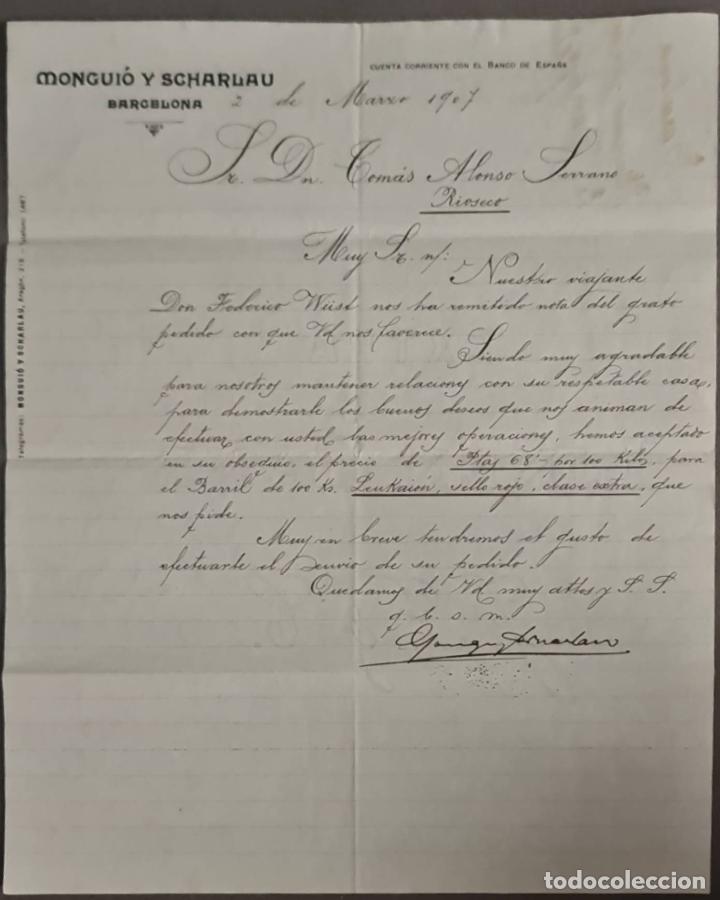 MONGUIÓ Y SCHARLAU
BARCELONA
CUENTA CORRIENTE CON EL BANCO DE ESPAÑA
2 de Marzo 1907
Sr. Dn. Tomás Alonso Serrano
Rioseco
Muy Sr. n/:
Nuestro viajante
Don Federico Wüst nos ha remitido nota del grato
pedido con que Vd nos favorece.
Siendo muy agradable
para nosotros mantener relaciones con su respetable casa,
para demostrarle los buenos deseos que nos animan de
efectuar con usted las mejores operaciones, hemos aceptado
en su obsequio, el precio de Ptas 68'- por 100 Kilos, para
el Barril de 100 Ks. Leukaión, sello rojo, clase extra, que
nos pide.
Muy en breve tendremos el gusto de
efectuarle el envio de su pedido.
Quedamos de Vd muy attos y S. S.
q. b. s. m.
Telegramas: MONGUIÓ Y SCHARLAU, Aragón,
todocoleccion